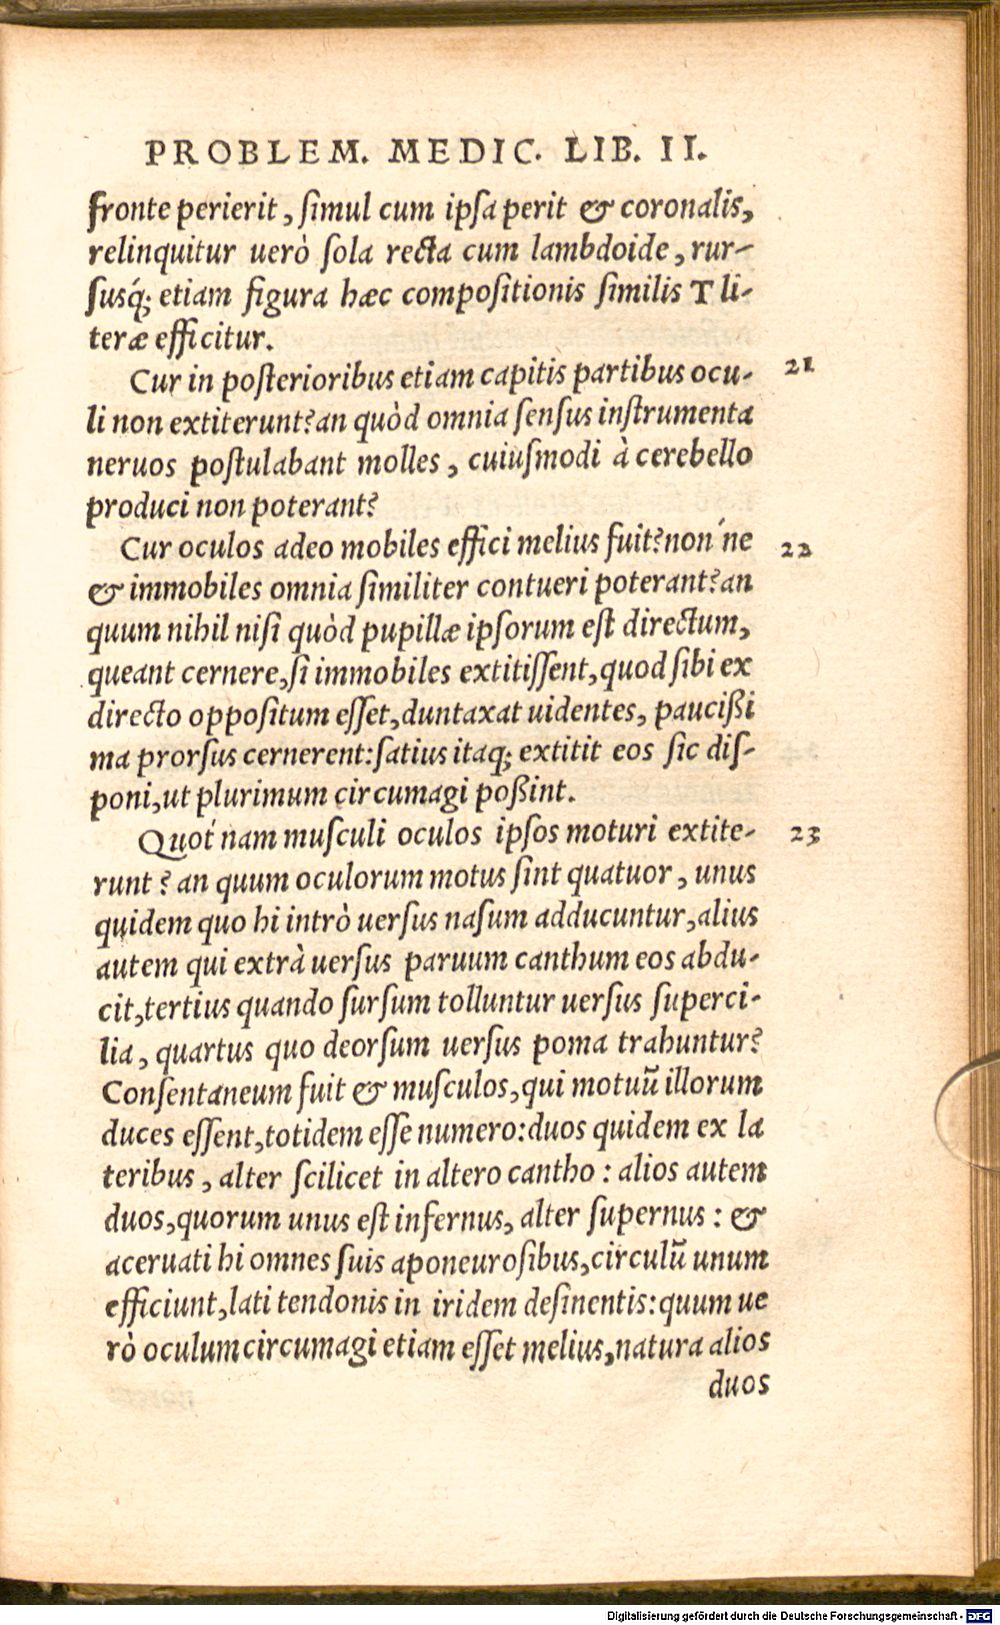 PROBLEM. MEDIC. LIB. II.
fronte perierit, ſimul cum ipſa perit & coronalis,
relinquitur uerò ſola recta cum lambdoide, rur-
ſusq́; etiam figura hæc compoſitionis ſimilis T li-
teræ efficitur.
Cur in poſterioribus etiam capitis partibus ocu- 21
li non extiterunt? an quòd omnia ſenſus inſtrumenta
neruos poſtulabant molles, cuiuſmodi à cerebello
produci non poterant?
Cur oculos adeo mobiles effici melius fuit? non'ne 22
& immobiles omnia ſimiliter contueri poterant? an
quum nihil niſi quòd pupillæ ipſorum eſt directum,
queant cernere, ſi immobiles extitiſſent, quod ſibi ex
directo oppoſitum eſſet, duntaxat uidentes, pauciſſi
ma prorſus cernerent: ſatius itaq; extitit eos ſic diſ-
poni, ut plurimum circumagi poßint.
Quot'nam muſculi oculos ipſos moturi extite- 23
runt? an quum oculorum motus ſint quatuor, unus
quidem quo hi intrò uerſus naſum adducuntur, alius
autem qui extrà uerſus paruum canthum eos abdu-
cit, tertius quando ſurſum tolluntur uerſus ſuperci-
lia, quartus quo deorſum uerſus poma trahuntur?
Conſentaneum fuit & muſculos, qui motuũ illorum
duces eſſent, totidem eſſe numero: duos quidem ex la
teribus, alter ſcilicet in altero cantho: alios autem
duos, quorum unus eſt infernus, alter ſupernus: &
aceruati hi omnes ſuis aponeuroſibus, circulũ unum
efficiunt, lati tendonis in iridem deſinentis: quum ue
rò oculum circumagi etiam eſſet melius, natura alios
duos
Digitalisierung gefördert durch die Deutsche Forschungsgemeinschaft - DFG